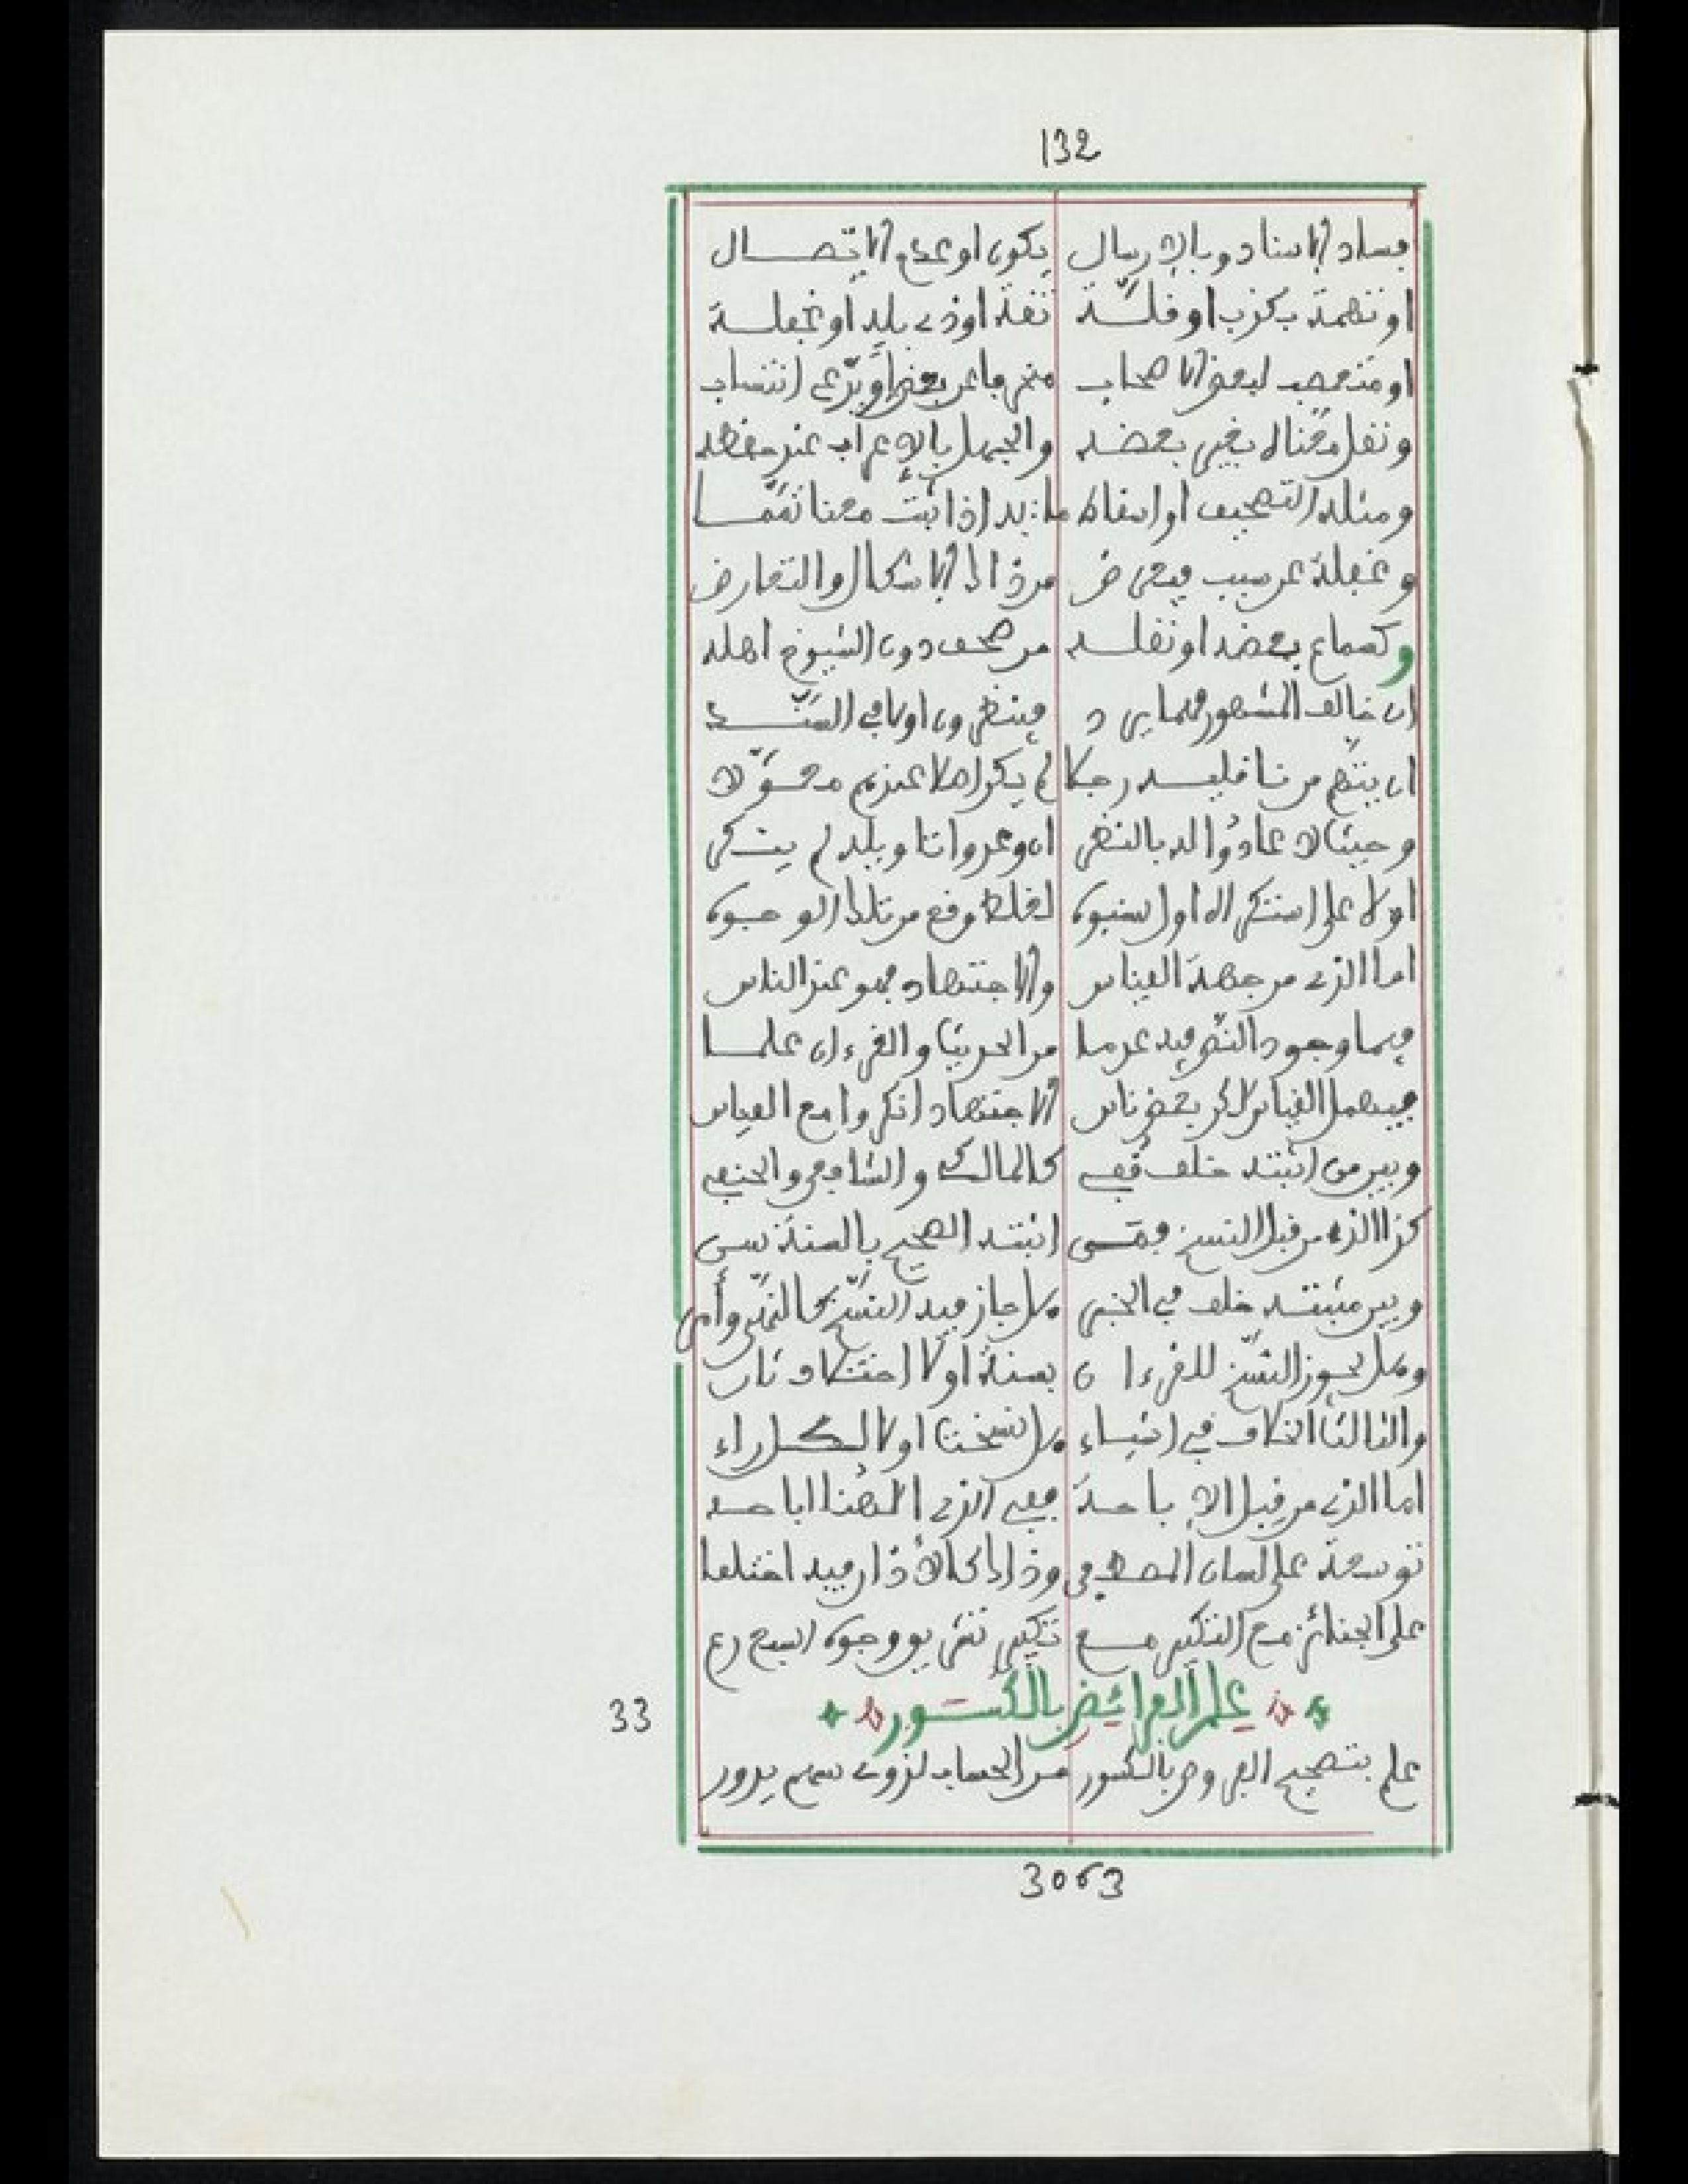 132
فساد الاسناد وبالإرسال يكون او عدم الاتّصال
او تهمة بكذب او قلّة ثقة اوذى بله أو غفلة
او متعصب لبعض الاصحاب منحرفا عن بعض أو يدّعى انتساب
ونقل معناه بغير بعضه والجهل بالإعراب عند حفظه
ومثله التصحيف او اسقاط ما به اذا ثبت معنا تمّما
وغفلة عن سبب فيعرض من ذاك الاشكال والتعارض
وكسماع بعضه او نقله من صحف دون الشيوخ اهله
ان خالف المشهور فيما يرد فينظرون اولا في السّند
ان يتهم من ناقليه رجلا لم يكن اصلا عندهم معوّلا
وحيث لا عادوا له بالنظر ان وعد واتا وبله لم يترك
اولا على استنكراه اول سنبوه لغلط وقع من تلك الوجوه
اما الذى من جهة القياس والاجتهاد فهو عند الناس
فيما وجود النص فيه عدما من الحديث والقرءان علما
فيسهل القياس لاكن بعض ناس الاجتهاد انكروا مع القياس
وبين من اثبته خلف قفى كالمالك والشافعى والحنفى
كذا الذى من قبل النسخ فمتى اثبته الصحيح بالسنة نسى
وبين مثبته خلف في الخبر هل جاز فيه النسخ كالنهى وأمر
وهل يجوز النسخ للقرءان بسنة أولا اختلاف ثان
والثالث الخلاف في اشياء هل نسخت اولا لكل راء
اما الذى من قبل الإباحة ففى الذى الهنا اباحه
توسعة على لسان المصطفى وذاك كالأذان فيه اختلفا
على الجنائز مع التكبير مع تكبير تشريق ووجوه السبع رع
33
علم الفرايض بالكسور
علم بتصحيح الفروض بالكسور من الحساب لذوى سهم يدور
3063